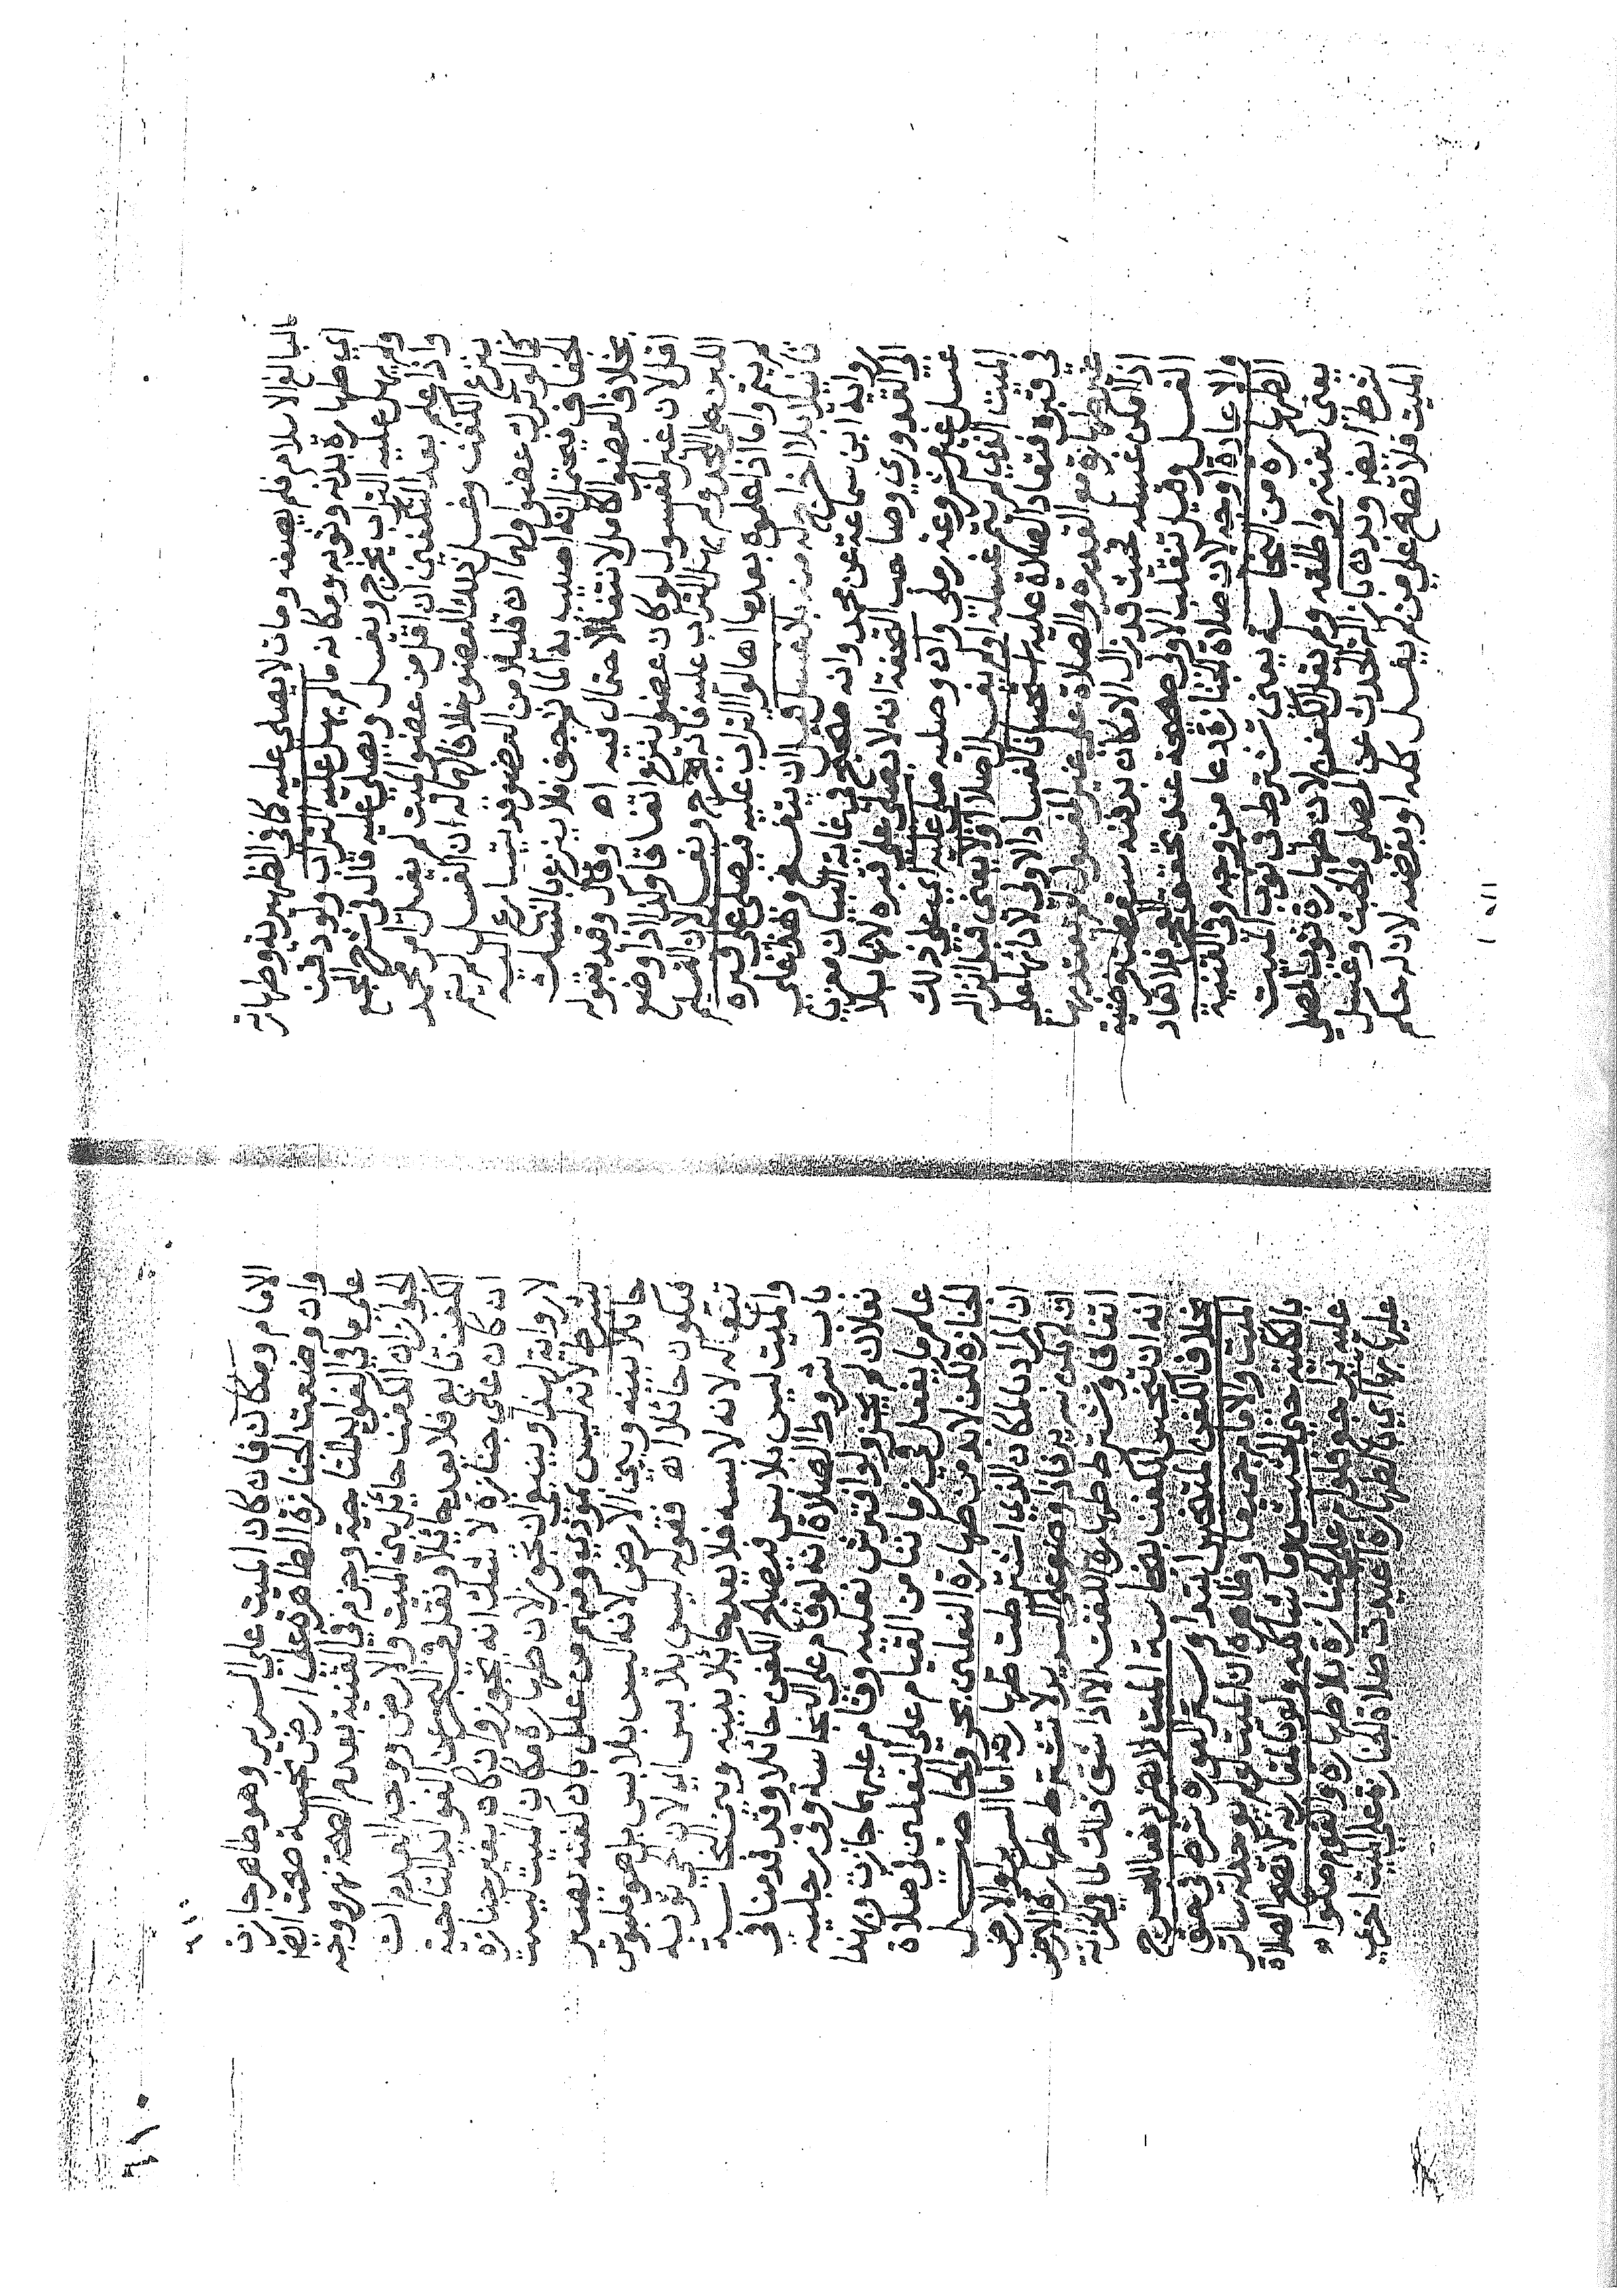 البالغ الاسلام فلم يصفه ومات لا يصلى عليه كما في الظهيرية وطهارته
اي طهارة بدنه وثوبه ومكانه مالم يهل عليه التراب ولو دفن
ولم يهل عليه التراب يخرج ويغسل ويصلى عليه قال في شرح المجمع
واذا علم بعد التكفين ان اقل من عضو الميت لم يغسل امر محمد
بنزع الكفن وغسل ذلك العضو خلافا لهما له ان الغسل لم يتم
كما لو ترك عضو ولهما ان قليلا من العضو قد يتسارع اليه
الجفاف فيحتمل انه اصيب به الما ثم جف فلا ينزع بالشك
بخلاف العضو الكامل الاحتمال فيه اه وقال وقد بقوله
اقل لان غير المغسول لو كان عضوا ينزع اتفاقا وكذا اذا وضع
اللبن على اللحد ولم يهل التراب عليه فانه يخرج ويغسل لان التسليم
لم يتم واما اذا علموه بعد ما اهالوا التراب عليه فيصلى على قبره
ثانيا بلا اخراج له منه بلا غسل قبل ان يتفسخ على
رواية ابن سماعة عن محمد وانه صحح في غاية البيان معزيا
الى القدوري وصاحب التحفة انه لا يصلى على قبره لانها بلا
غسل غير مشروعة رملي وان وصلية صلى عليه اي صلى ذلك
الميت الذي لم يتم غسله اولم يغسل اصلا اولا يعني قبل انزاله
في قبره فتعاد الصلاة عليه استحسانا لفساد الاولى لادائها على
غير طهارة مع القدرة والصلاة على غير المغسول لم يعتد بها
اذا امكن غسله حيث قد زال الامكان بدفنه سقط فرضية
الغسل وقيل تنقلب الاولى صحيحة عند تحقق العجز فلا تعاد
والاعادة اوجه لان صلاة الجنازة دعا من وجه وفي القنية
الطهارة من النجاسة يعني تشترط في ثوب الميت
يعني كفنه واطلقه ولم يقل الكفن لان طهارة ثوب المصلي
شرط ايضا وبدنه بازالة الحدث عن المصلي والخبث وغسل
الميت فلا تصح على من لم يغسل كله او بعضه لانه له حكم
الامام ومكانه فان كان الميت على السرير وهو طاهر جازت
وان وضعت الجنازة الطاهرة على ارض نجسة صحت ايضا
على ما في الفوايد التاجية وجزم في القنية بعدم الصحة نهر ووجه
الجواز ان الكفن حائل بين الميت والارض ووجه العدم ان
الكفن تابع فلا يعد حائلا ونقل في البحر عن الفوايد التاجية
ان كان على جنازة لا شك انه يجوز وان كان بغير جنازة
لا رواية لهذا وينبغي ان يجوز لان طهارة مكان الميت ليست
بشرط لانه ليس بمؤدي ومنهم من علل بان كفنه يصير
حائلا بينه وبين الارض لانه ليس بلابس بل هو ملبوس
فيكون حائلا اه فقوله ليس بلابس اي لان ثوبه
تبع له لانه لابسه فلا يعد حايلا بينه وبين النجاسة
والميت ليس بلابس فيصلح الكفن حائلا وقد قدمنا في
باب شروط الصلاة انه لو قام على النجاسة وفي رجليه
نعلان لم يجز ولو افترش نعليه وقام عليهما جازت وبهذا
علم ما يفعل في زماننا من القيام على النعلين في صلاة
الجنازة لكن لابد من طهارة النعلين بحر والحاصل
ان المراد بالمكان الذي اشترطت طهارته اما السرير او الارض
ان لم يكن سرير فاذا وضع على السرير لا تشترط طهارة الارض
اتفاقا وتشترط طهارة الكفن الا اذا شق ذلك لما في الخزانة
انه ان تنجس الكفن بنجاسة الميت لا يضر دفعا للحرج
بخلاف الكفن المتنجس ابتدا وستر العورة شرط في حق
الميت والامام جميعا وظاهره ان الميت لو لم يوجد له ساتر
بالكلية حتى الحشيش وما شاكله ولو بالعارية لا تصح الصلاة
عليه بزاخر فلو ام على الجنازة بلا طهارة والقوم صلوا
عليها بها اي بالطهارة اعيدت صلاة الجنازة على الميت اخرى